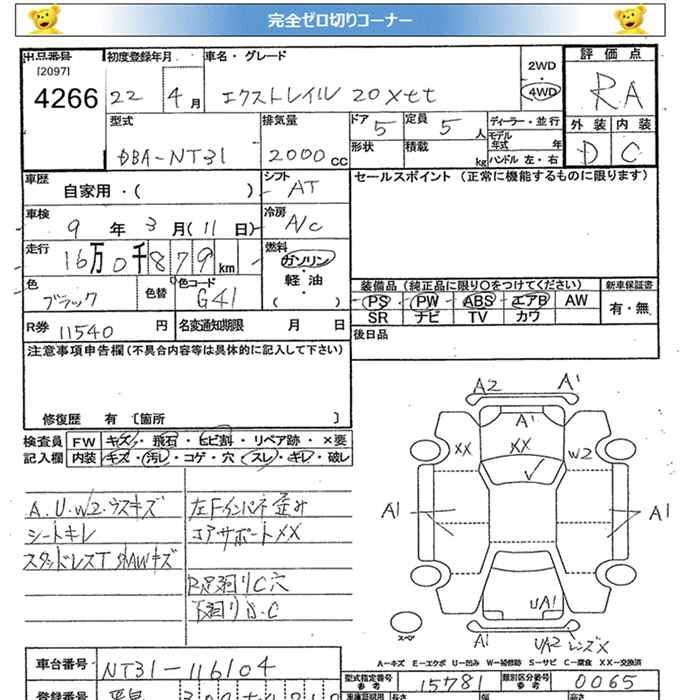 完全ゼロ切りコーナー
出品番号 初度登録年月 車名・グレード 評価点
[2097] 2WD
4266 22 4月 エクストレイル 20Xtt ・ 4WD RA
型式 排気量 ドア 5 定員 5人 ディーラー・並行 外装 内装
DBA-NT31 2000cc 形状 積載 kg モデル年式 年 D C
ハンドル 左・右
車歴 シフト AT セールスポイント (正常に機能するものに限ります)
自家用・( )
車検 9年 3月(11日) 冷房 A/C
走行 16万0千879km 燃料 ガソリン・軽油・( )
色 ブラック 色替 色コード G41
装備品 (純正品に限り○をつけてください) 新車保証書
PS PW ABS エアB AW 有・無
SR ナビ TV カワ
R券 11540円 名変通知期限 月 日 後日品
注意事項申告欄 (不具合内容等は具体的に記入して下さい)
修復歴 有 [箇所 ]
検査員 FW キズ・飛石・ヒビ割・リペア跡・×要
記入欄 内装 キズ・汚れ・コゲ・穴・スレ・キレ・破レ
A.U.W2.ウスキズ 左Fインパネ歪み
シートキレ コアサポートXX
スタッドレスT
足廻りC穴
下廻りS.C
A2 A1
A1
XX XX W2
A1 A1
UA1
スペア A1 UA2 レンズX
A-キズ E-エクボ U-凹み W-補修跡 S-サビ C-腐食 XX-交換済
車台番号 NT31-116104
型式指定番号 15781 類別区分番号 0065
参考 参考
登録番号
車庫証明用 長さ 幅 高さ